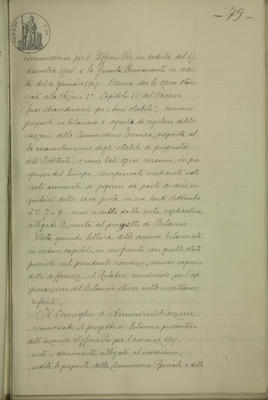 - 79 -
Commissione per l'Ufficio Pio in seduta del 17
dicembre 1906 e la Giunta Permanente in seduta
del 4 gennaio 1907. Osserva che le spese stanziate
alla Sezione 2ª Capitolo 12 del Passivo
"Spese straordinarie per i beni stabili" vennero
proposte in bilancio a seguito di regolari deliberazioni
della Commissione Tecnica, preposta alla
manutenzione degli stabili di proprietà
dell'Istituto, e come tali spese saranno, in progresso
del tempo, compensate mediante notevole
aumento di pigione da parte di due inquilini
della casa posta in via Venti Settembre
come risulta dalla nota esplicativa,
allegato B, unita al progetto di Bilancio.
Data quindi lettura delle somme bilanciate
in cadun capitolo, in confronto con quelle state
previste nel precedente esercizio, dando ragione
delle differenze, il Relatore conchiude per l'approvazione
del Bilancio stesso nelle risultanze
riferite.
Il Consiglio di Amministrazione
esaminato il progetto di bilancio preventivo
dell'azienda Ufficio Pio per l'esercizio 1907.
visti i documenti allegati al medesimo,
udite le proposte della Commissione Speciale e della